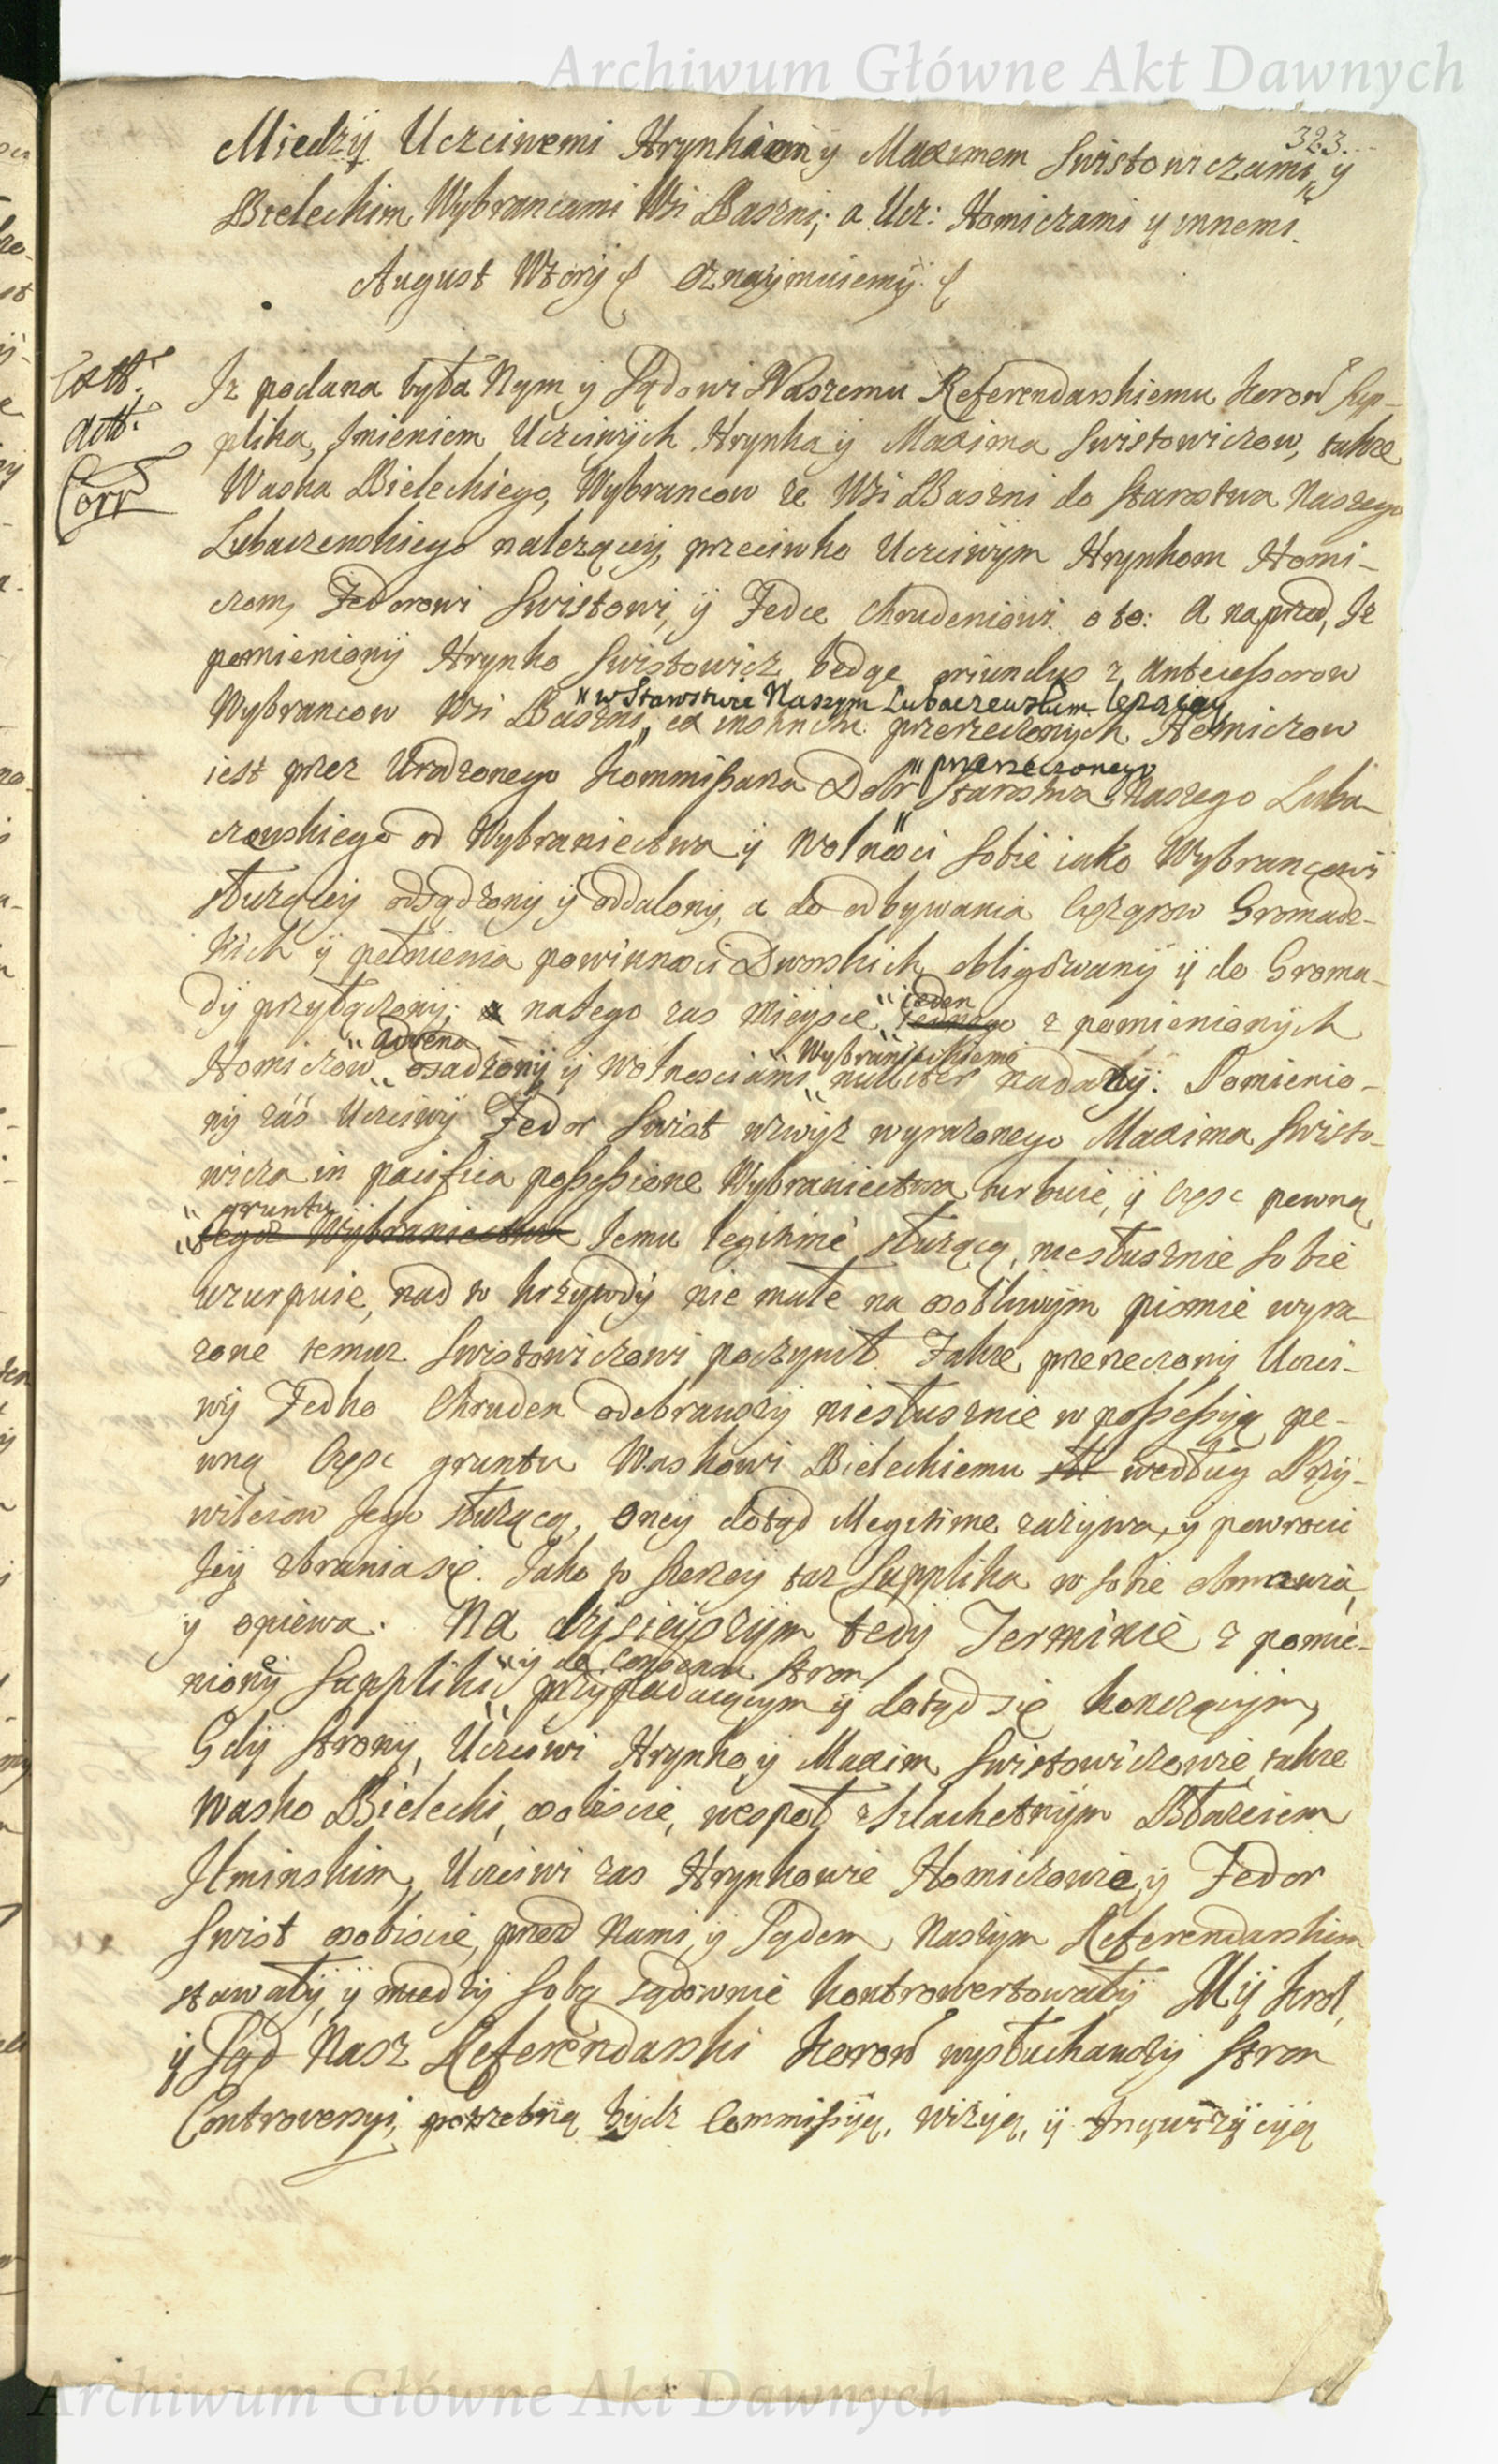 Archiwum Główne Akt Dawnych
323.
Miedzÿ Uczciwemi Hrynkiem y Maximem Swistowiczami, y
Bieleckim Wybrancami Wsi Baszni; a Ucz: Homiczami y innemi.
August Wtorÿ Oznaÿmuiemÿ.
Iz podana była Nam y Sądowi Naszemu Referendarskiemu Koron Sup-
plika, Imieniem Uczciwÿch Hrynka y Maxima Swistowiczow, takze
Waska Bieleckiego, Wybrancow ze Wsi Baszni do Starostwa Naszego
Corr
Lubaczewskiego nalezącey, przeciwko Uczciwÿm Hrynkom Homi-
czom, Fedorowi Swistowi, ÿ Fedce Chrudeniowi. o to: A naprzod, Iz
pomienionÿ Hrynko Swistowicz, bedąc oriundus z Antecessorow
"w Starostwie Naszym Lubaczewskim lezącey
Wybrancow Wsi Baszni, ex instinctu przerzeczonÿch Homiczow
"przerzeczonego
iest przez Urodzonego Kommissarza Dobr Starostwa Naszego Luba-
czewskiego od Wybraniectwa ÿ Wolnosci sobie iako Wybrancowi
słuzącey odsądzonÿ ÿ oddalony, a do odbywania Cięzarow Gromadz-
kich ÿ pełnienia powinnosci Dworskich obligowanÿ ÿ do Groma-
"ieden
dÿ przyłączonÿ; a na tego zas Mieysce iednego z pomienionÿch
"advena Wybranieckiemi
Homiczow osadzonÿ ÿ Wolnosciami nulliter nadanÿ. Pomienio-
nÿ zaś Uczciwÿ Fedor Swist wzwÿz wyrazonego Maxima Swisto-
wicza in pacifica possessione Wybraniectwa turbuie, ÿ Częsc pewną
"gruntu
tegoz Wÿbraniectwa Jemu legitime słuzącą, niesłusznie sobie
uzurpuie, nad to krzywdÿ nie małe na osobliwÿm pismie wyra-
zone temuz Swistowiczowi poczynił. Takze, przerzeczonÿ Uczci-
wÿ Fedko Chruden odebrawszÿ niesłusznie w possessÿą pe-
wną Częsc gruntu Waskowi Bieleckiemu według Przÿ-
wileiow Jego słuzącą, oney dotąd illegitime zazÿwa, y powrocic
Jeÿ zbrania się. Jako to szerzey taz Supplika w sobie obmawia,
y opiewa. Na dzisieÿszÿm tedÿ Terminie z pomie-
"ÿ do Stron
nioneÿ Suppliki przypadaiącym ÿ dotąd się konczącÿm,
Gdÿ Stronÿ, Uczciwi Hrynko, ÿ Maxim Swistowiczowie, takze
Wasko Bielecki, osobiscie, wespoł z Szlachetnÿm Błazeiem
Ilminskim, Uczciwi zas Hrynkowie Homiczowie, ÿ Fedor
Swist osobiscie, przed Nami, ÿ Sądem Naszÿm Referendarskim
stawałÿ, ÿ miedzÿ sobą sądownie kontrowertowałÿ. Mÿ Krol,
ÿ Sąd Nasz Referendarski Koron wysłuchawszÿ Stron
Controversyi, potrzebną bÿdz Commissÿą, Wizÿą, ÿ Inqwizÿcÿą
Archiwum Główne Akt Dawnych